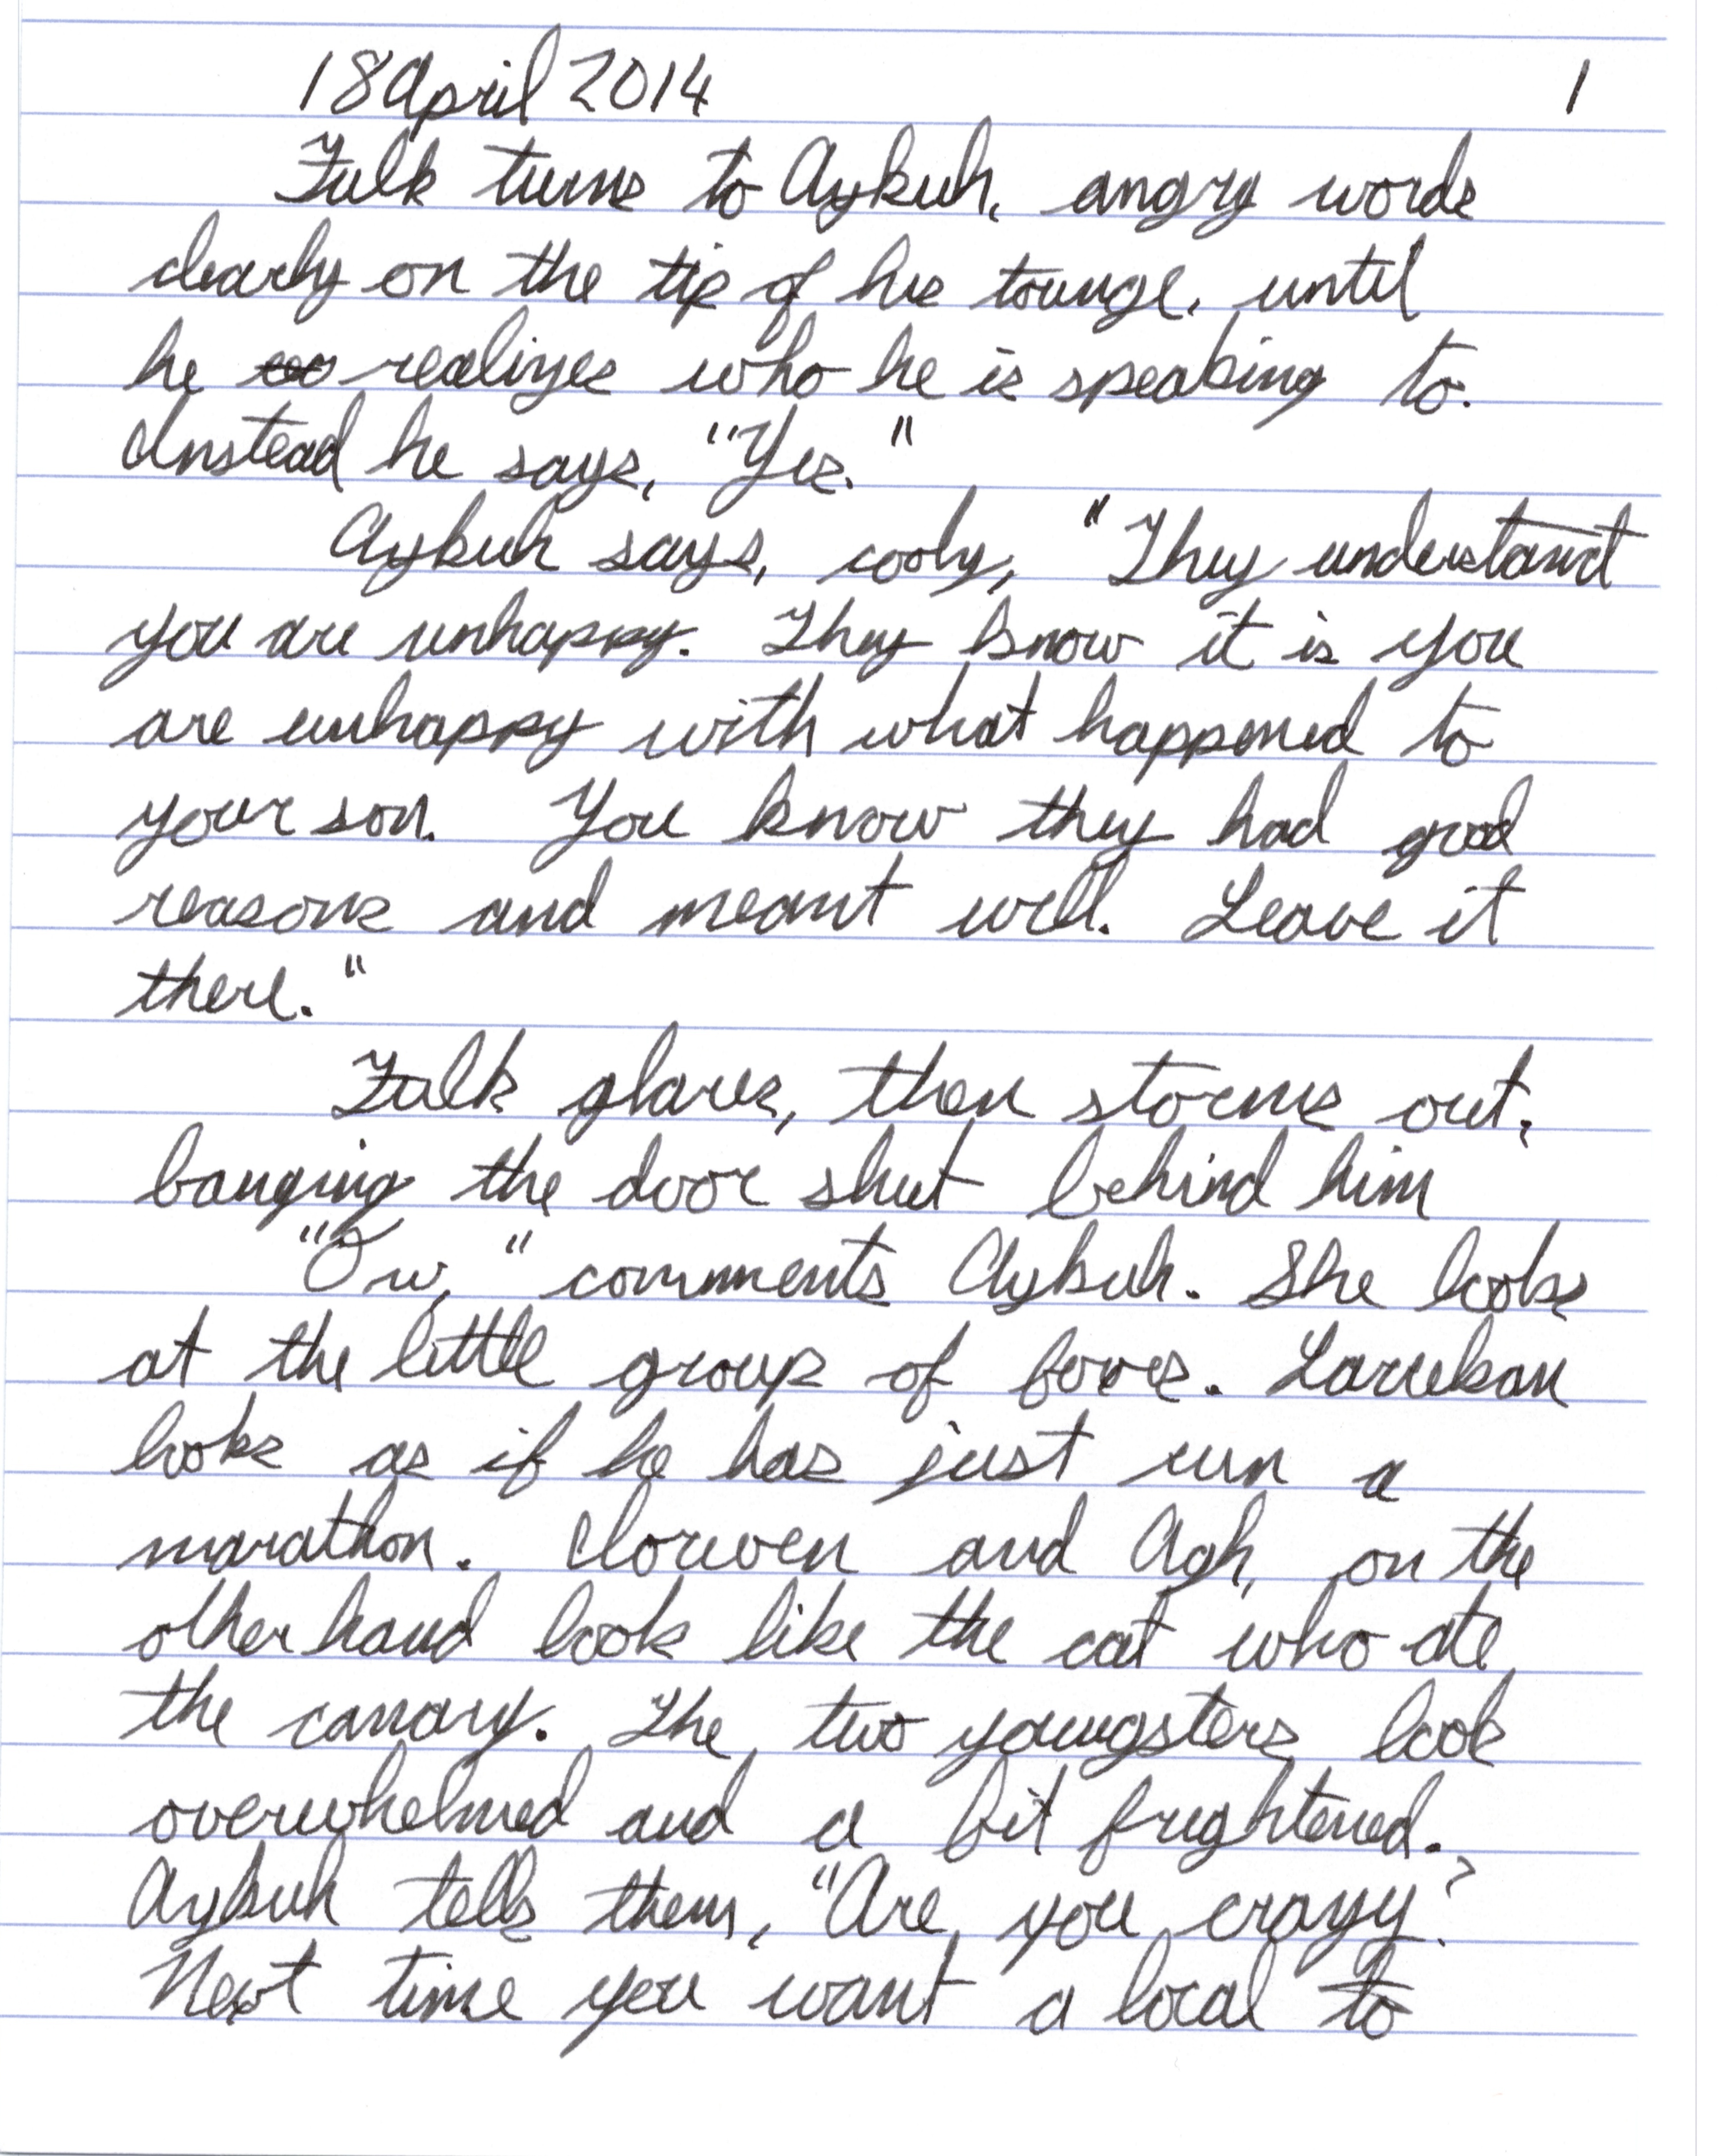 18 April 2014 1
Fulk turns to Aykuh, angry words
clearly on the tip of his tounge, until
he realizes who he is speaking to.
Instead he says, "Yes."
Aykuh says, cooly, "They understand
you are unhappy. They know it is you
are unhappy with what happened to
your son. You know they had good
reasons and meant well. Leave it
there."
Fulk glares, then storms out,
banging the door shut behind him
"Ow," comments Aykuh. She looks
at the little group of boves. Laruekan
looks as if he has just run a
marathon. Clorwen and Agh, on the
other hand look like the cat who ate
the canary. The two youngsters look
overwhelmed and a bit frightened.
Aykuh tells them, "Are you crazy?
Next time you want a local to